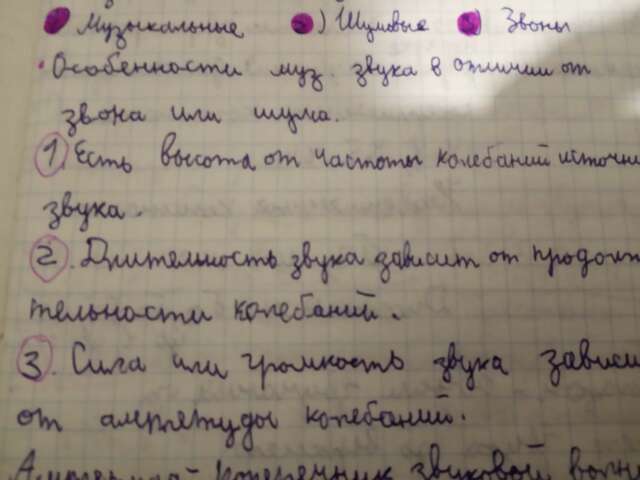 Музыкальные ) Шумовые ) Звоны
Особенности муз. звука в отличии от
звона или шума.
1. Есть высота от частоты колебаний источни
звука.
2. Длительность звука зависит от продолж
тельности колебаний.
3. Сила или громкость звука зависи
от амплетуды колебаний.
поперечник звуковой волн